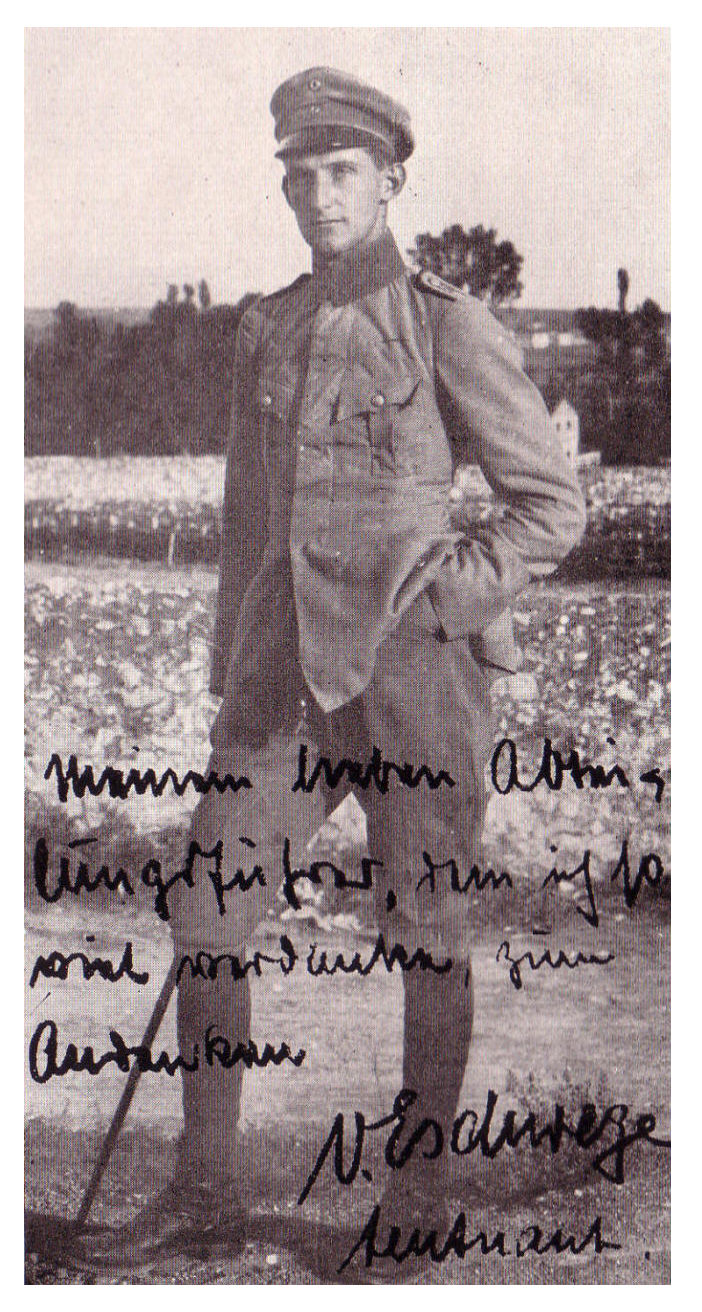 Meinem lieben Abtei-
lungsführer, dem ich so
viel verdanke, zum
Andenken
v. Eschwege
Leutnant.